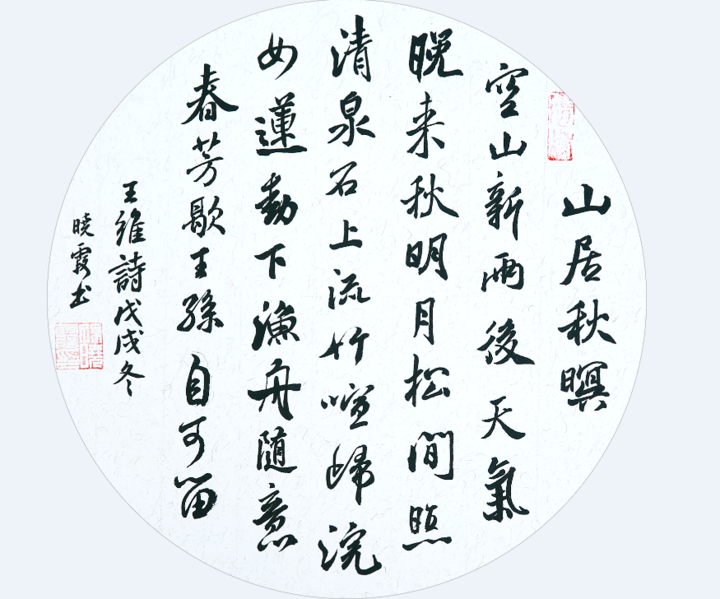 山居秋暝
空山新雨後天氣
晚来秋明月松间照
清泉石上流竹喧歸浣
女蓮動下漁舟随意
春芳歇王孫自可留
王維詩戊戌冬
晓霞书